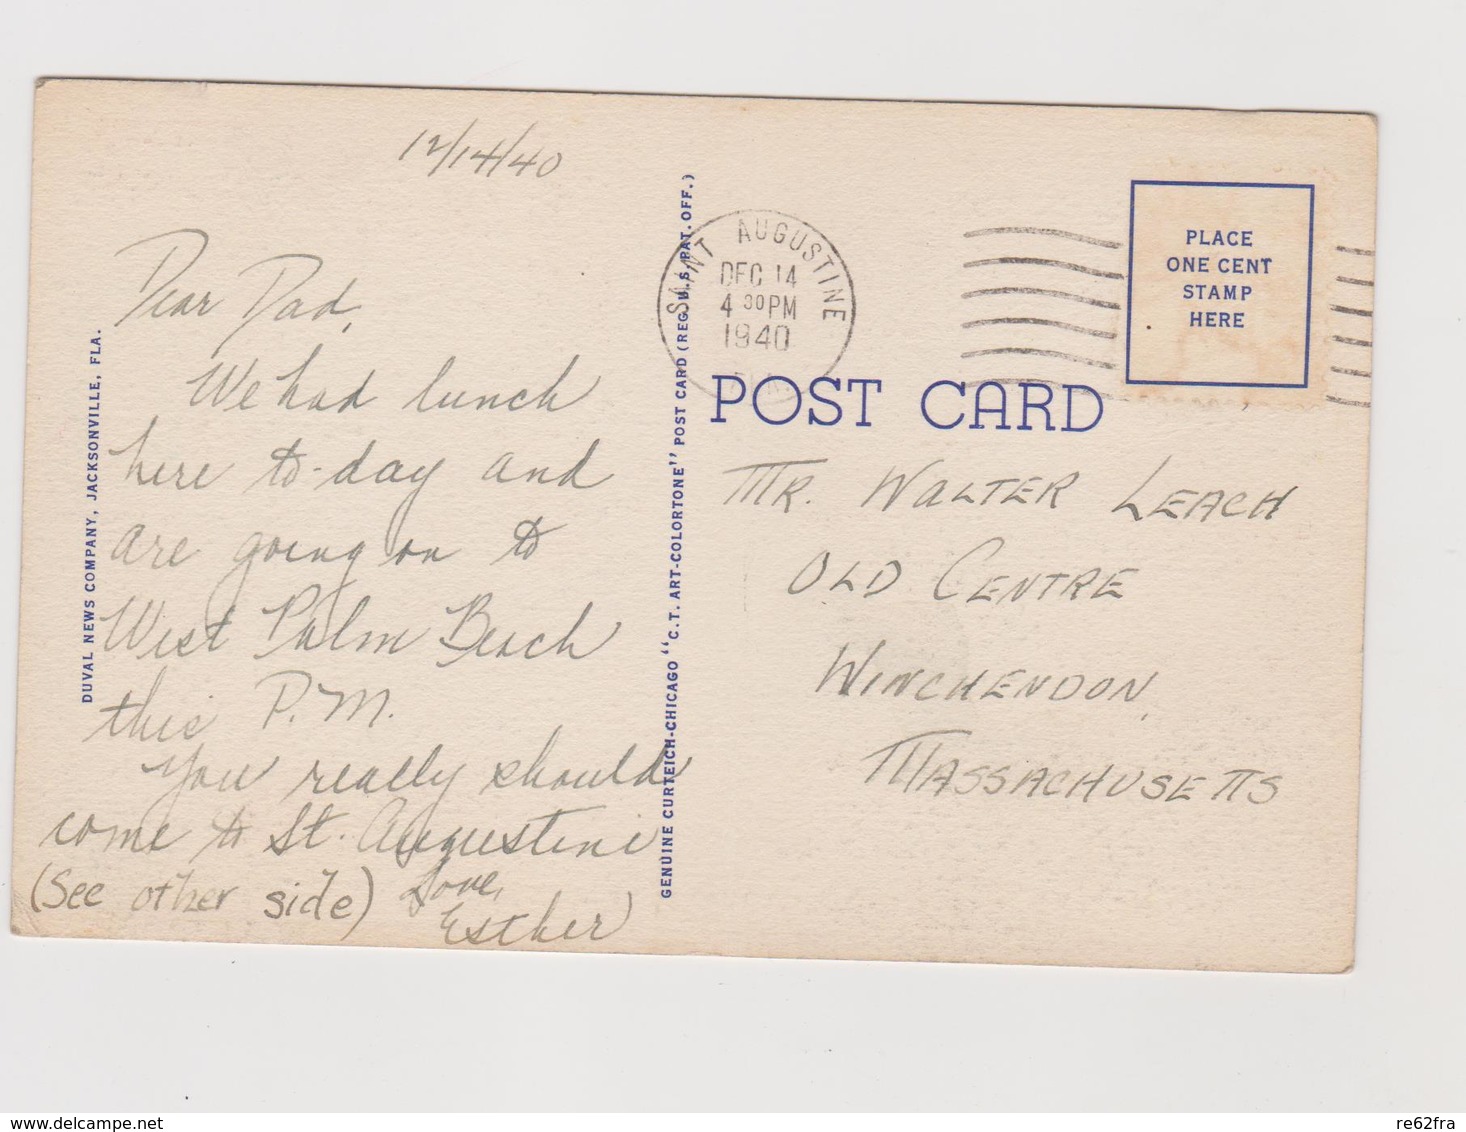 12/14/40
Dear Dad,
We had lunch
here to-day and
are going on to
West Palm Beach
this P.M.
You really should
come to St. Augustine
(See other side) Love,
Esther
DUVAL NEWS COMPANY, JACKSONVILLE, FLA.
GENUINE CURTEICH-CHICAGO "C.T. ART-COLORTONE" POST CARD (REG. U.S. PAT. OFF.)
SAINT AUGUSTINE
DEC 14
4 30 PM
1940
PLACE
ONE CENT
STAMP
HERE
POST CARD
MR. WALTER LEACH
OLD CENTRE
WINCHENDON,
MASSACHUSETTS
delcampe.net
re62fra